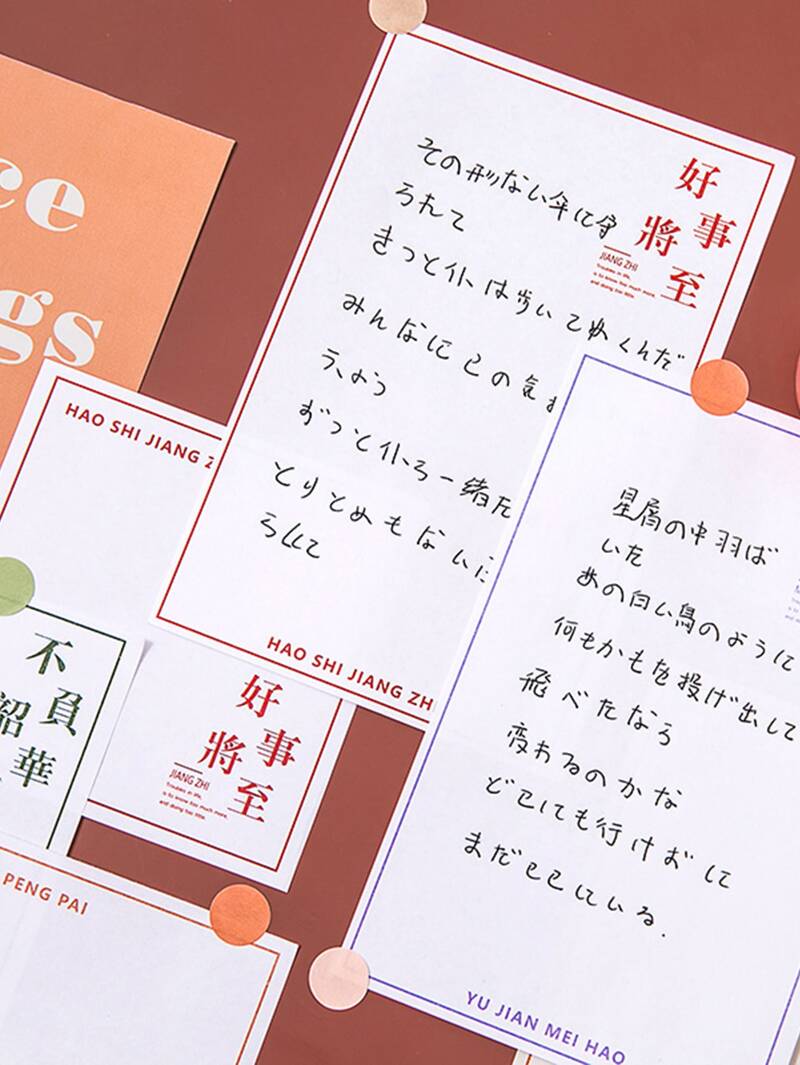 ce
gs
その形ない伞に守
られて
きっと仆は歩いてゆくんだ
みんなにこの気
ずっと仆ら一緒だ
とりとめもない
好事將至
JIANG ZHI
Troubles in life,
is to know too much more,
and doing too little.
HAO SHI JIANG ZH
HAO SHI JIANG Z
好事將至
JIANG ZHI
Troubles in life,
is to know too much more,
and doing too little.
不負韶華
PENG PAI
星屑の中羽ば
いた
あの白い鳥のように
何もかもを投げ出して
飛べたなら
変わるのかな
どこにも行けずに
まだここにいる.
YU JIAN MEI HAO